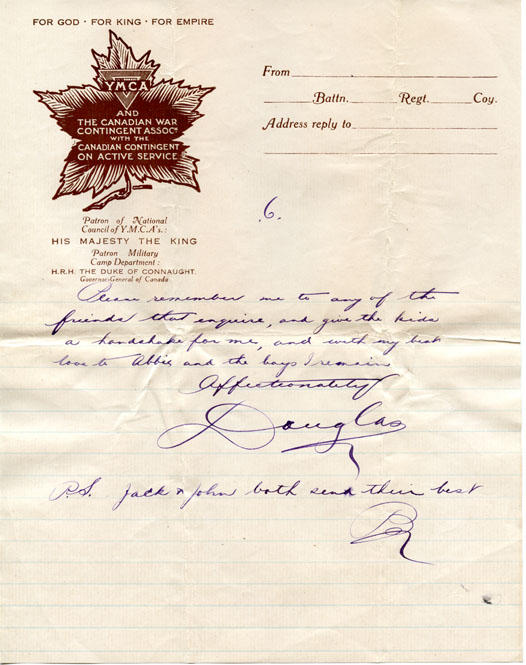 FOR GOD · FOR KING · FOR EMPIRE
YMCA
AND
THE CANADIAN WAR
CONTINGENT ASSOCN
WITH THE
CANADIAN CONTINGENT
ON ACTIVE SERVICE
Patron of National
Council of Y.M.C.A's.:
HIS MAJESTY THE KING
Patron Military
Camp Department:
H.R.H. THE DUKE OF CONNAUGHT.
Governor-General of Canada
From
Battn. Regt. Coy.
Address reply to
6.
Please remember me to any of the
friends that enquire, and give the kids
a handshake for me, and with my best
love to Abbie and the boys I remain
Affectionately
Douglas
P.S. Jack & John both send their best